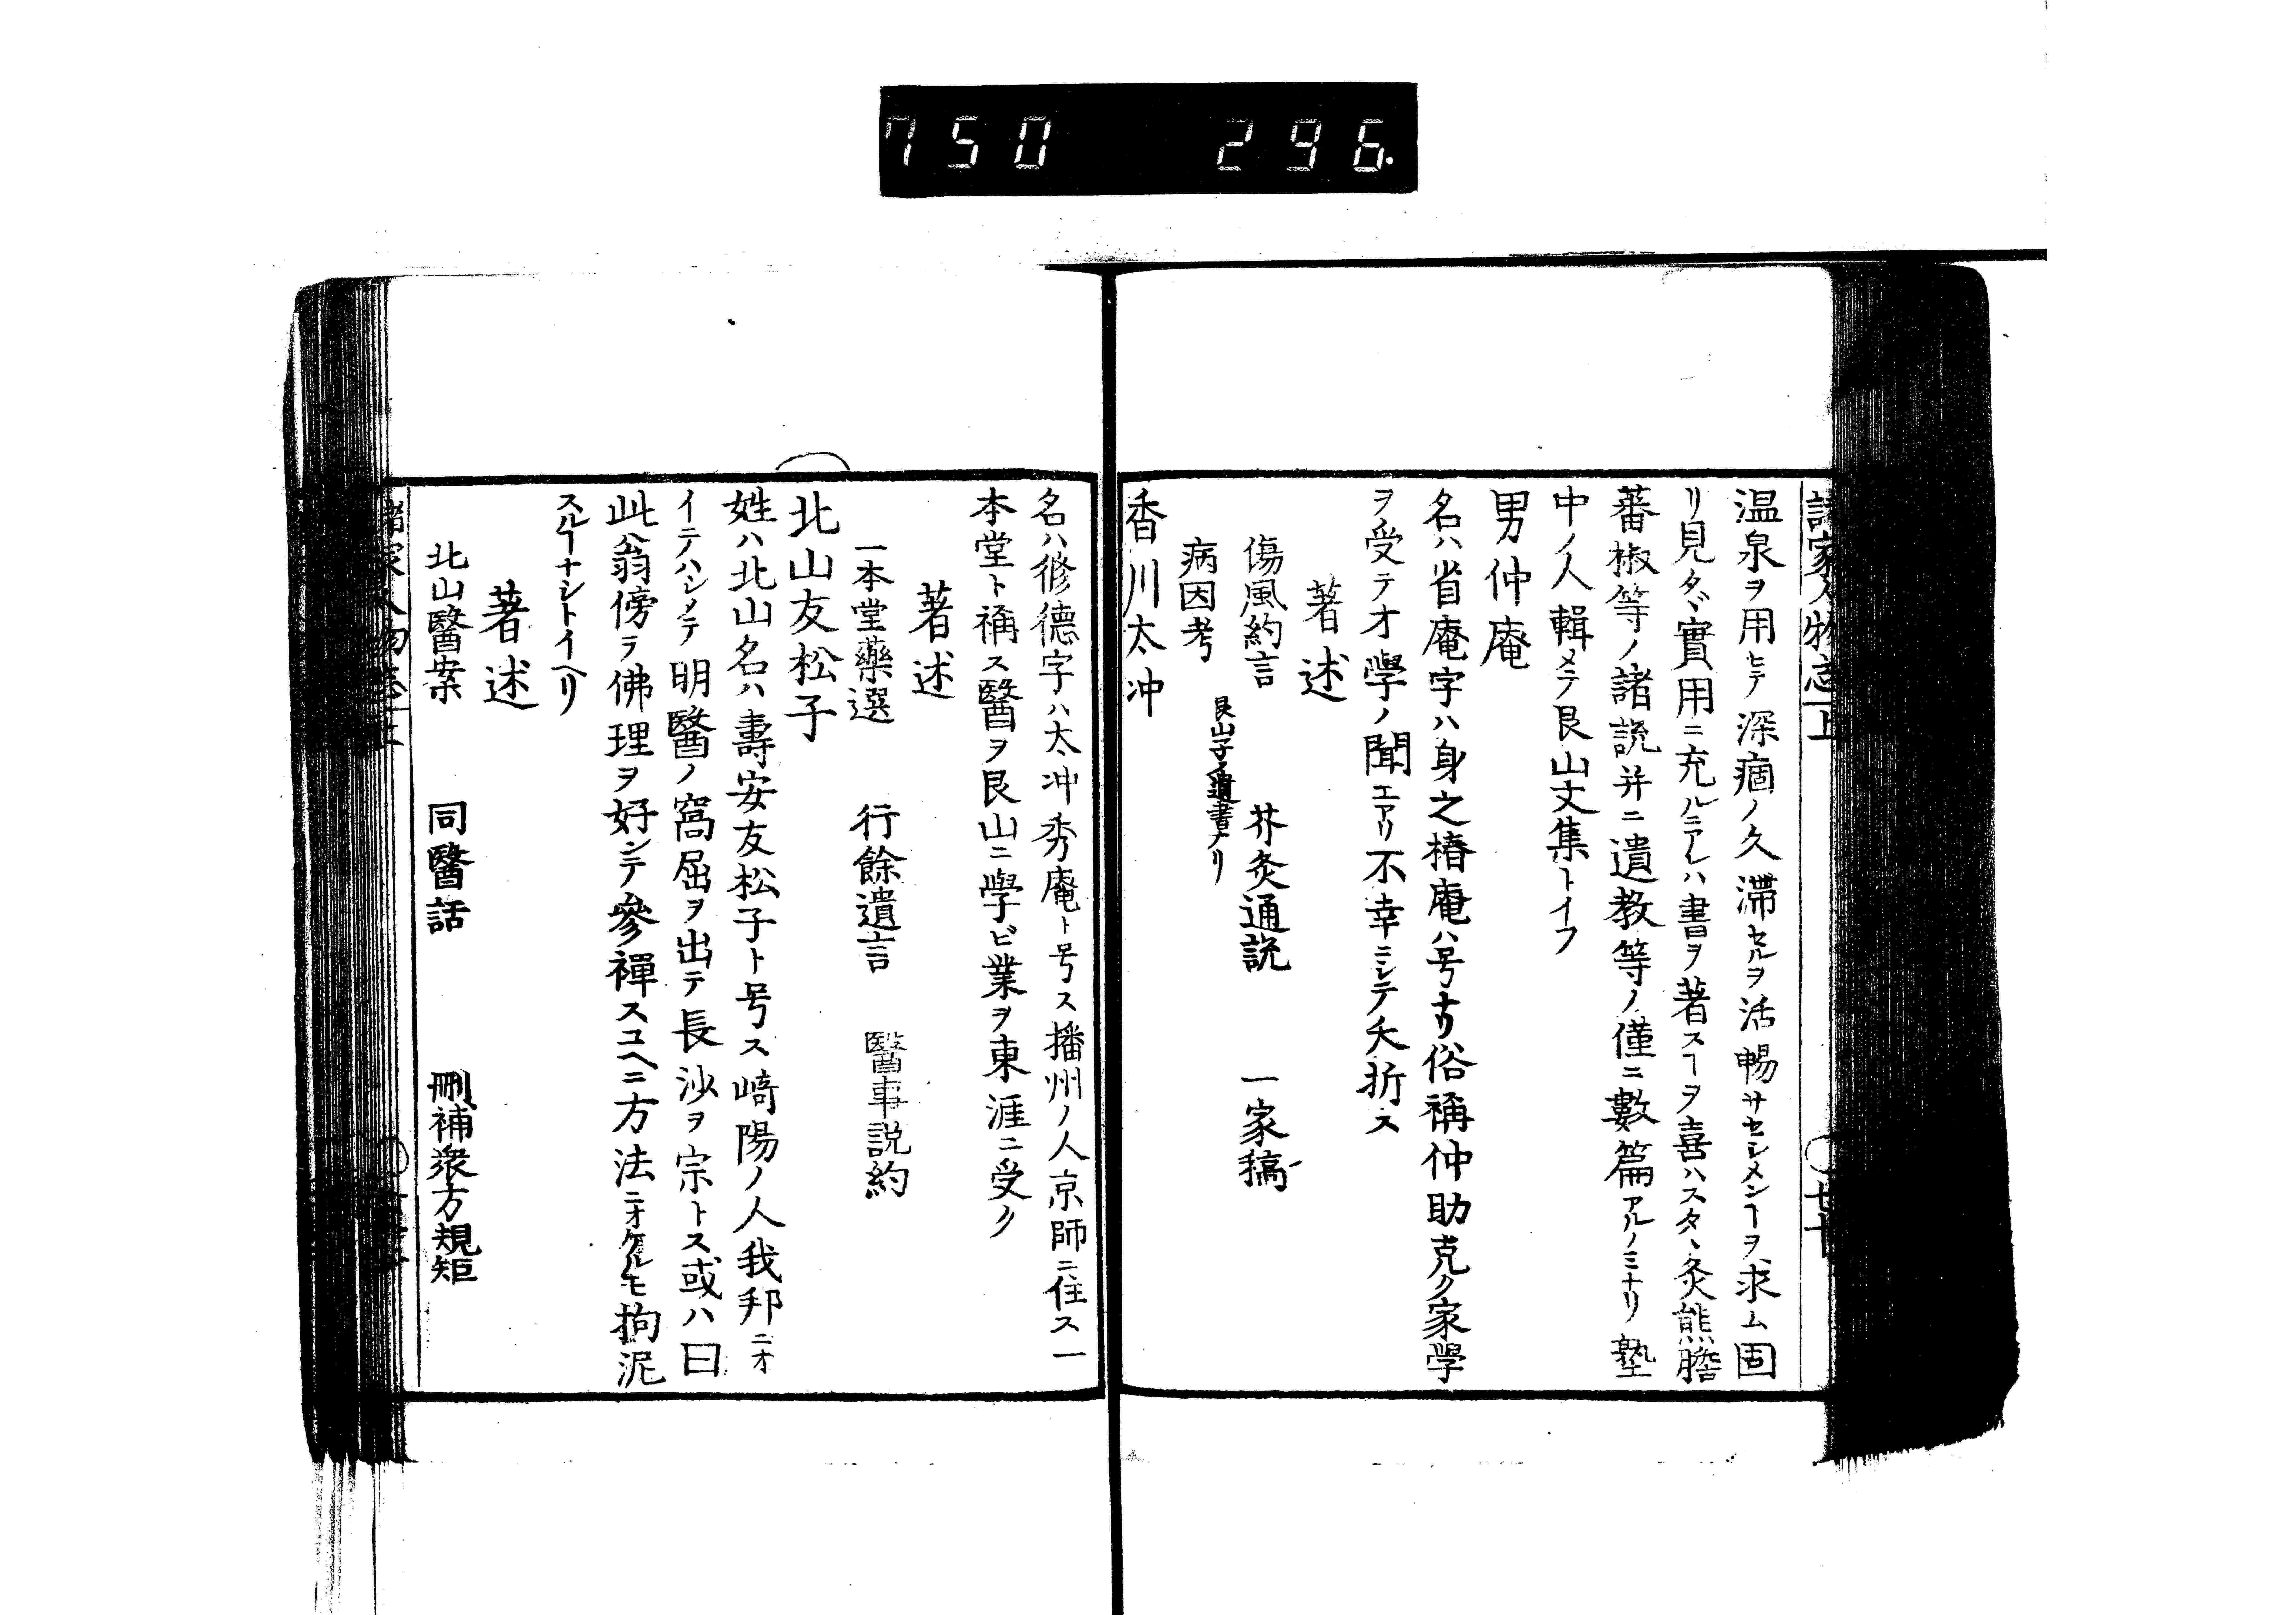 750 296.
諸家人物志上
温泉ヲ用ヒテ深痼ノ久滞セルヲ活暢サセシメンヿヲ求ム固
リ見タヾ實用ニ充ルニアレハ書ヲ著スヿヲ喜ハスタヽ灸熊膽
蕃椒等ノ諸説并ニ遺教等ノ僅ニ數篇アルノミナリ塾
中ノ人輯メテ艮山文集トイフ
男仲庵
名ハ省庵字ハ身之椿庵ハ号ナリ俗稱仲助克ク家學
ヲ受テオ學ノ聞エアリ不幸ニシテ夭折ス
著述
傷風約言 芥灸通説 一家稿
病因考 艮山子ノ遺書ナリ
香川太冲
名ハ修德字ハ太冲秀庵ト号ス播州ノ人京師ニ住ス一
本堂ト稱ス醫ヲ艮山ニ學ビ業ヲ東涯ニ受ク
著述
一本堂藥選 行餘遺言 醫事説約
北山友松子
姓ハ北山名ハ壽安友松子ト号ス崎陽ノ人我邦ニオ
イテハシメテ明醫ノ窩屈ヲ出テ長沙ヲ宗トス或ハ曰
此翁傍ヲ佛理ヲ好ンテ參禪スユヘニ方法ニオケルモ拘泥
スルヿナシトイヘリ
著述
北山醫案 同醫話 刪補衆方規矩